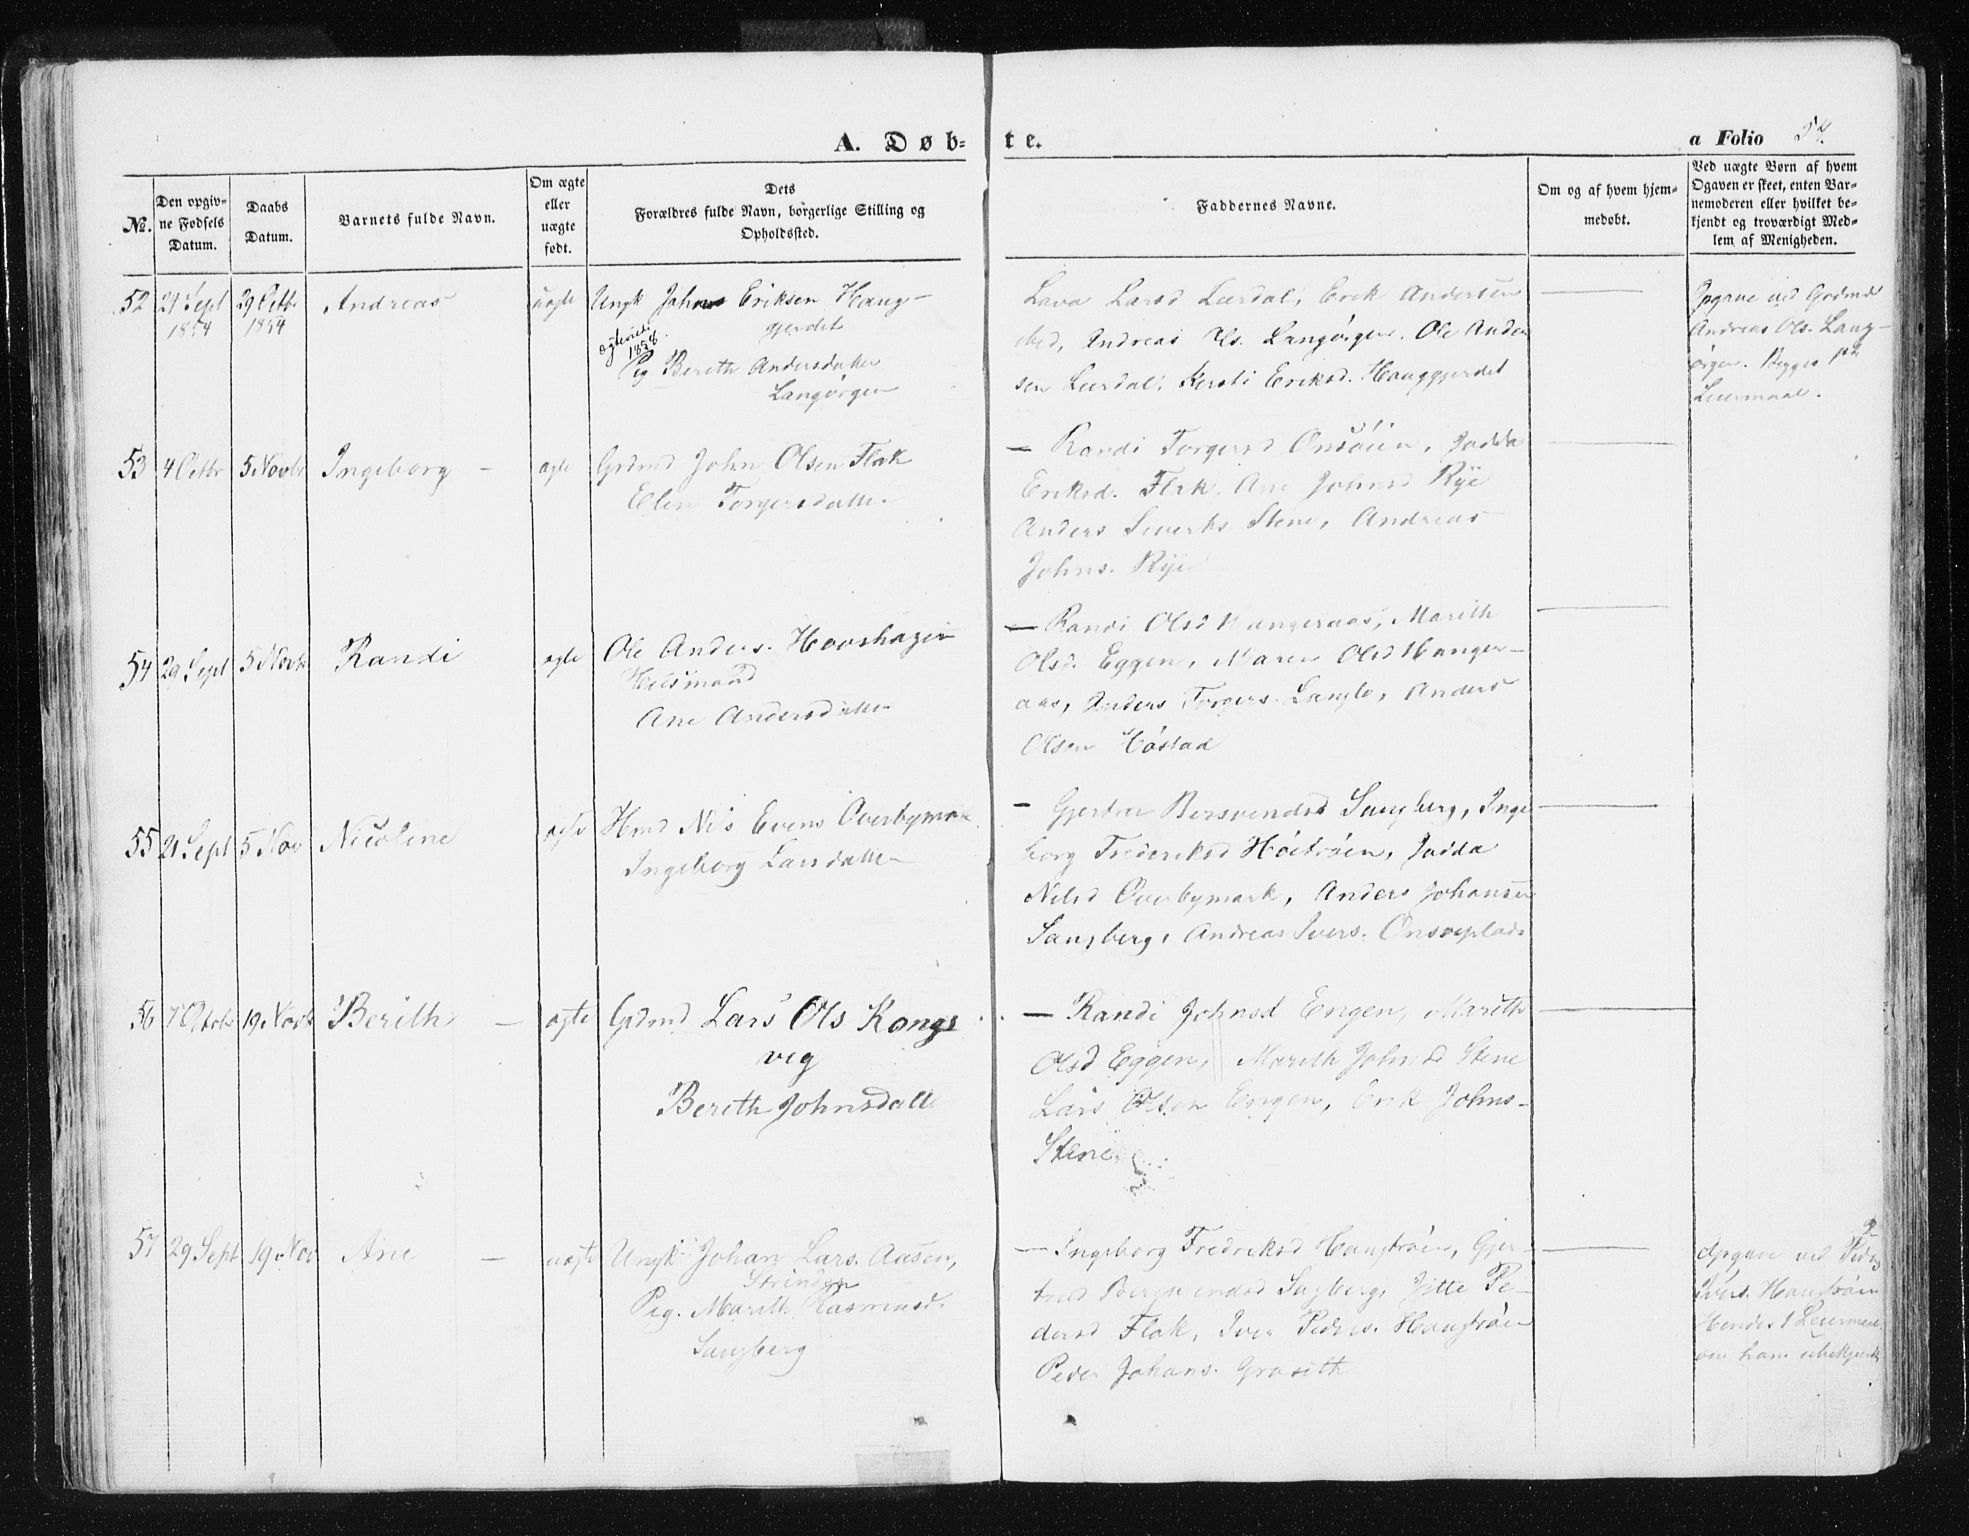 A. Døb-
te.
a Folio 57.
No.
Den opgiv-
ne Fødsels
Datum.
Daabs
Datum.
Barnets fulde Navn.
Om ægte
eller
uægte
født.
Dets
Forældres fulde Navn, borgerlige Stilling og
Opholdssted.
Faddernes Navne.
Om og af hvem hjem-
medøbt.
Ved uægte Børn af hvem
Opgaven er skeet, enten Bar-
nemoderen eller hvilket be-
kjendt og troværdigt Med-
lem af Menigheden.
52 21 Sept 29 Octbr Andreas uægte Ungk Johan Eriksen Haug-
1854 1854 gjerdet
1858.
Pig Bereth Andersdatter
Langørgen
Larsd Lerdal, Erik Andersen
ibid, Andreas Ols. Langørgen. Ole Ander
sen Lerdal, Kersti Eriksd. Hauggjerdet
Opgave ved Grdmd
Andreas Ols. Lang-
ørgen. Begges 1ste
Leiermaal.
53 4 Octbr 5 Novbr Ingeborg - ægte Grdmd John Olsen Flak
Elen Torgersdatter
— Randi Torgersd Onsøien, Jadda
Eriksd. Flak. Ane Johnsd Rye
Anders Siverts Stene, Andreas
Johns. Rye
54 29 Sept 5 Novbr Randi ægte Ole Anders. Hovshagen
Huusmand
Ane Andersdatter
— Randi Olsd Hangeraas, Marith
Olsd. Eggen, Maren Olsd Hanger-
aas, Anders Torgers. Langlo, Anders
Olsen Høstad
55 21 Sept 5 Nov Nicoline ægte Hmd Nils Evens Overbymark
Ingeborg Larsdatter
— Bersvendsd Saugberg, Inge
borg Frederiksd Jadda
Nilsd Overbymark, Anders Johansen
Saugberg, Andreas Ivers. Onsøeplads
56 7 Octobr 19 Novbr Berith — ægte Grdmd Lars Ols Kongs
vig
Bereth Johnsdatt
— Randi Johnsd Engen, Marith
Olsd Eggen, Marith Johnsd Stene
Lars Olsen Engen, Erik Johns-
Stene
57 29 Sept 19 Nov Ane — uægte Ungk Johan Lars. Aasen,
Strinden
Pig. Marith Rasmusd.
Saugberg
— Ingeborg Fredriksd Haugtrøen, Gjer-
trud Bersvendsd Saugberg, Jitte Pe-
dersd Flak, Iver Peders. Haugtrøen
Peder Johans. Graseth
Opgave ved Peder
Ivers. Haugtrøen
Hendes 1 Leiermaal,
om ham ubekjendt